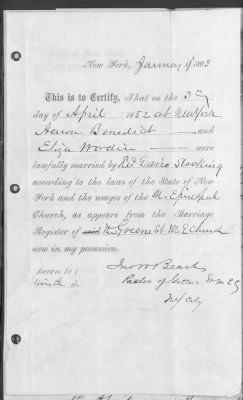 New York, January 9' 1893
This is to Certify, That on the 3rd
day of April 1852 at New York
Aaron Benedict and
Eliza Wordin were
lawfully married by Rev Davis Stocking
according to the laws of the State of New
York and the usages of the M. Episcopal
Church, as appears from the Marriage
Register of said the Greene St. M. E Church
now in my possession.
Sworn to
Jno W Beach
ninth d
Pastor of Greene
N.Y. City